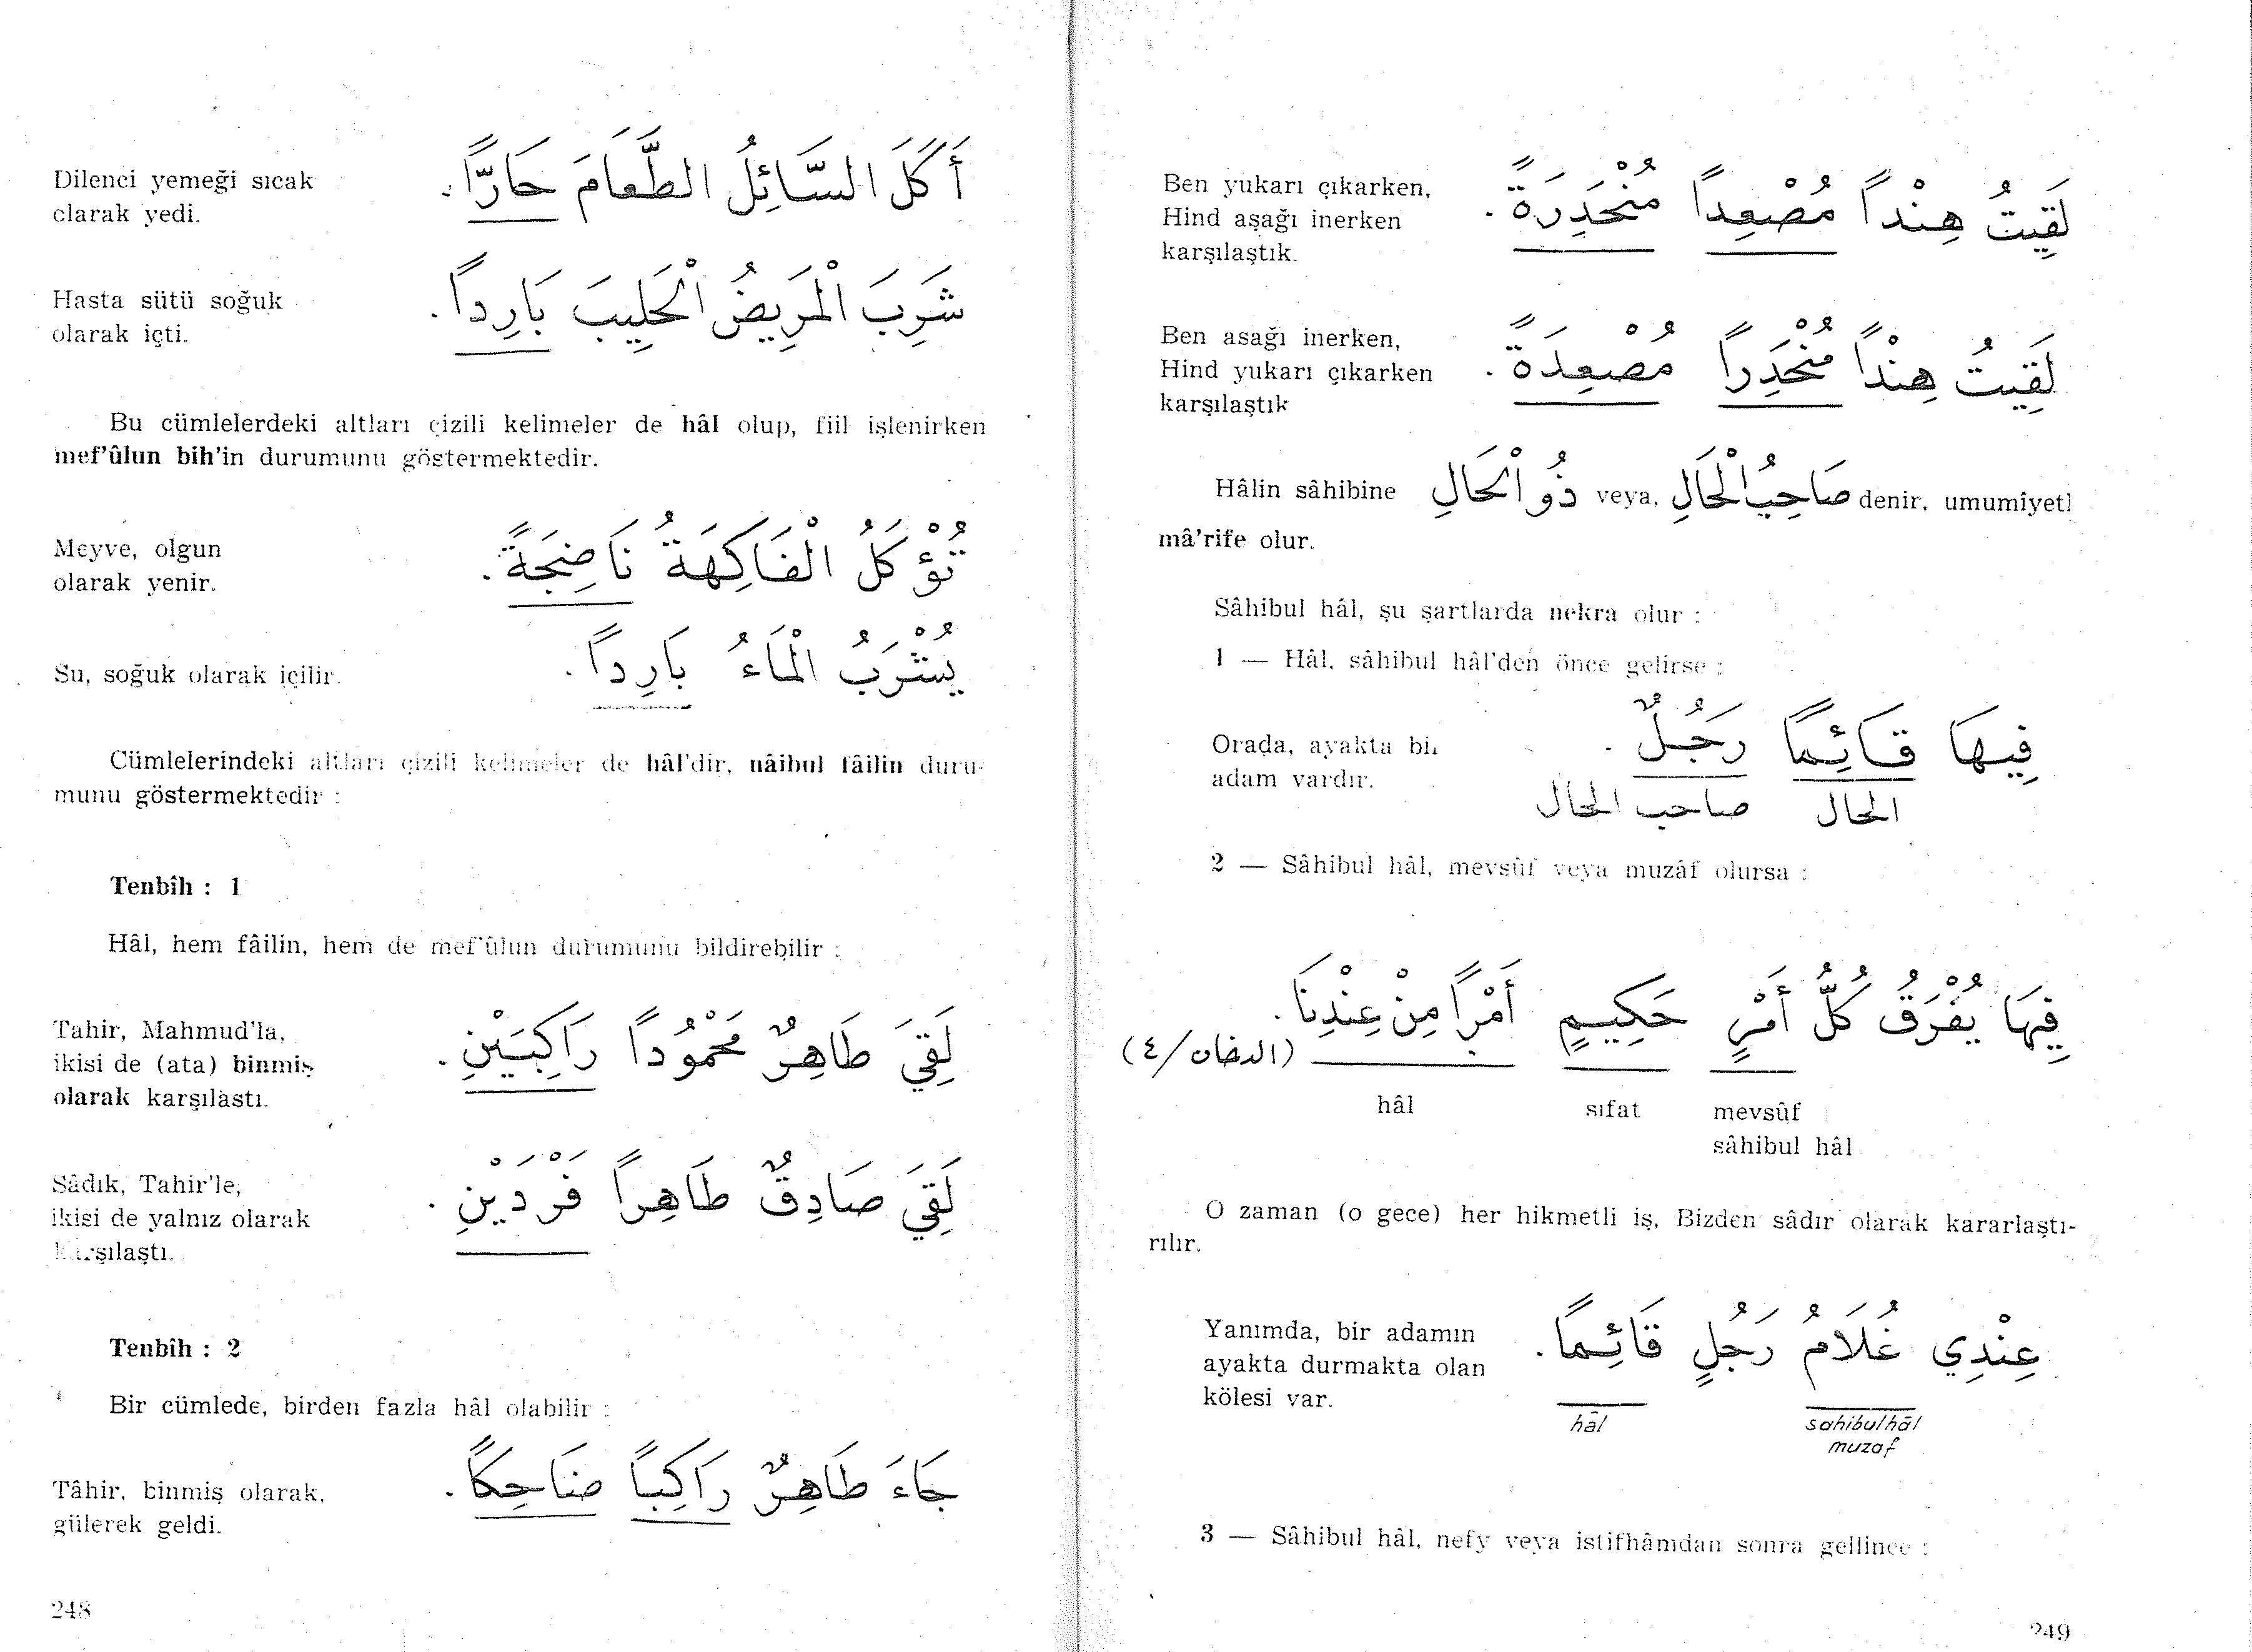 Dilenci yemeği sıcak
olarak yedi.
أَكَلَ السَّائِلُ الطَّعَامَ حَارًّا.
Hasta sütü soğuk
olarak içti.
شَرِبَ الْمَرِيضُ الْحَلِيبَ بَارِداً.
Bu cümlelerdeki altları çizili kelimeler de hâl olup, fiil işlenirken
mef'ûlun bih'in durumunu göstermektedir.
Meyve, olgun
olarak yenir.
تُؤْكَلُ الْفَاكِهَةُ نَاضِجَةً.
Su, soğuk olarak içilir.
يُشْرَبُ الْمَاءُ بَارِداً.
Cümlelerindeki altları çizili kelimeler de hâl'dir, nâibul fâilin duru-
munu göstermektedir :
Tenbîh : 1
Hâl, hem fâilin, hem de mef'ûlun durumunu bildirebilir :
Tahir, Mahmud'la,
ikisi de (ata) binmiş
olarak karşılaştı.
لَقِيَ طَاهِرٌ مَحْمُوداً رَاكِبَيْنِ.
Sâdık, Tahir'le,
ikisi de yalnız olarak
karşılaştı.
لَقِيَ صَادِقٌ طَاهِراً فَرْدَيْنِ.
Tenbîh : 2
Bir cümlede, birden fazla hâl olabilir :
Tâhir, binmiş olarak,
gülerek geldi.
جَاءَ طَاهِرٌ رَاكِبًا ضَاحِكًا.
248
Ben yukarı çıkarken,
Hind aşağı inerken
karşılaştık.
لَقِيتُ هِنْداً مُصْعِداً مُنْحَدِرَةً.
Ben asağı inerken,
Hind yukarı çıkarken
karşılaştık
لَقِيتُ هِنْداً مُنْحَدِراً مُصْعِدَةً.
Hâlin sâhibine ذُو الْحَالِ veya, صَاحِبُ الْحَالِ denir, umumîyetl
mâ'rife olur.
Sâhibul hâl, şu şartlarda nekra olur :
1 — Hâl, sâhibul hâl'den önce gelirse :
Orada, ayakta bir
adam vardır.
فِيهَا قَائِمًا رَجُلٌ.
الحال صاحب الحال
2 — Sâhibul hâl, mevsûf veya muzâf olursa :
فِيهَا يُفْرَقُ كُلُّ أَمْرٍ حَكِيمٍ أَمْراً مِنْ عِنْدِنَا.
(الدخان/٤)
hâl sıfat mevsûf
sâhibul hâl
O zaman (o gece) her hikmetli iş, Bizden sâdır olarak kararlaştı-
rılır.
Yanımda, bir adamın
ayakta durmakta olan
kölesi var.
عِنْدِي غُلَامُ رَجُلٍ قَائِمًا.
hâl sahibulhâl
muzaf
3 — Sâhibul hâl, nefy veya istifhâmdan sonra gellince :
249